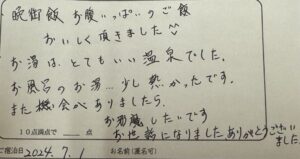 晩御飯 お腹いっぱいのご飯
おいしく頂きました
お湯は、とてもいい温泉でした。
お風呂のお湯…少し熱かったです。
また機会がありましたら、
お邪魔したいです
お世話になりましたありがとうございました
10点満点で 点
ご宿泊日 2024.7.1 お名前(匿名可)